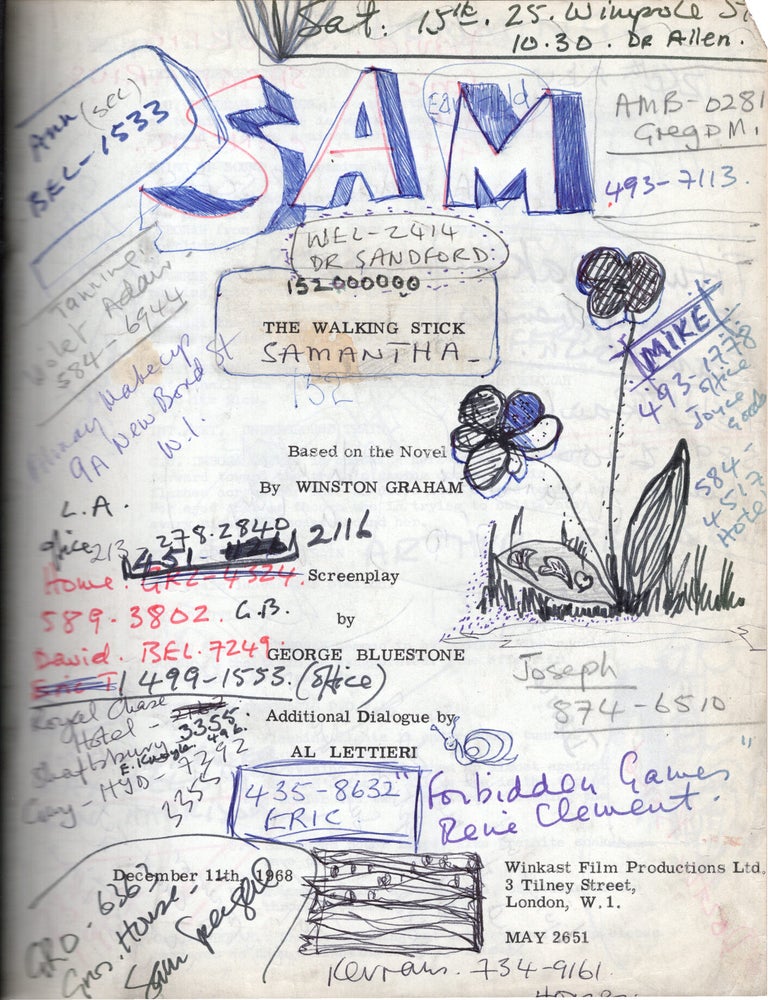 Sat. 15th. 25. Wimpole St.
10.30. Dr Allen.
Ann (sec)
BEL-1533
SAM
AMB-0281
Greg D M.
493-7113.
WEL-2414
DR SANDFORD
152000000
THE WALKING STICK
SAMANTHA
132
Violet Adair.
584-6944
Make up
9A New Bond St
W.1
MIKE
493-1778
office
Joyce
584-
4517
Hotel
Based on the Novel
By WINSTON GRAHAM
L.A.
office 213
278.2840
451
2116
Home. GRL-4324.
Screenplay
589-3802. G.B.
by
David. BEL.7249.
GEORGE BLUESTONE
Eric T
499-1553. (office)
Joseph
874-6510
Royal Chase
Hotel -
Additional Dialogue by
Shaftsbury 3355.
496.
AL LETTIERI
HYD-7392
3355
435-8632
ERIC
"Forbidden Games"
René Clement.
December 11th, 1968
Winkast Film Productions Ltd,
3 Tilney Street,
London, W.1.
MAY 2651
GRO-6363
Gros. House.
Sam
734-9161